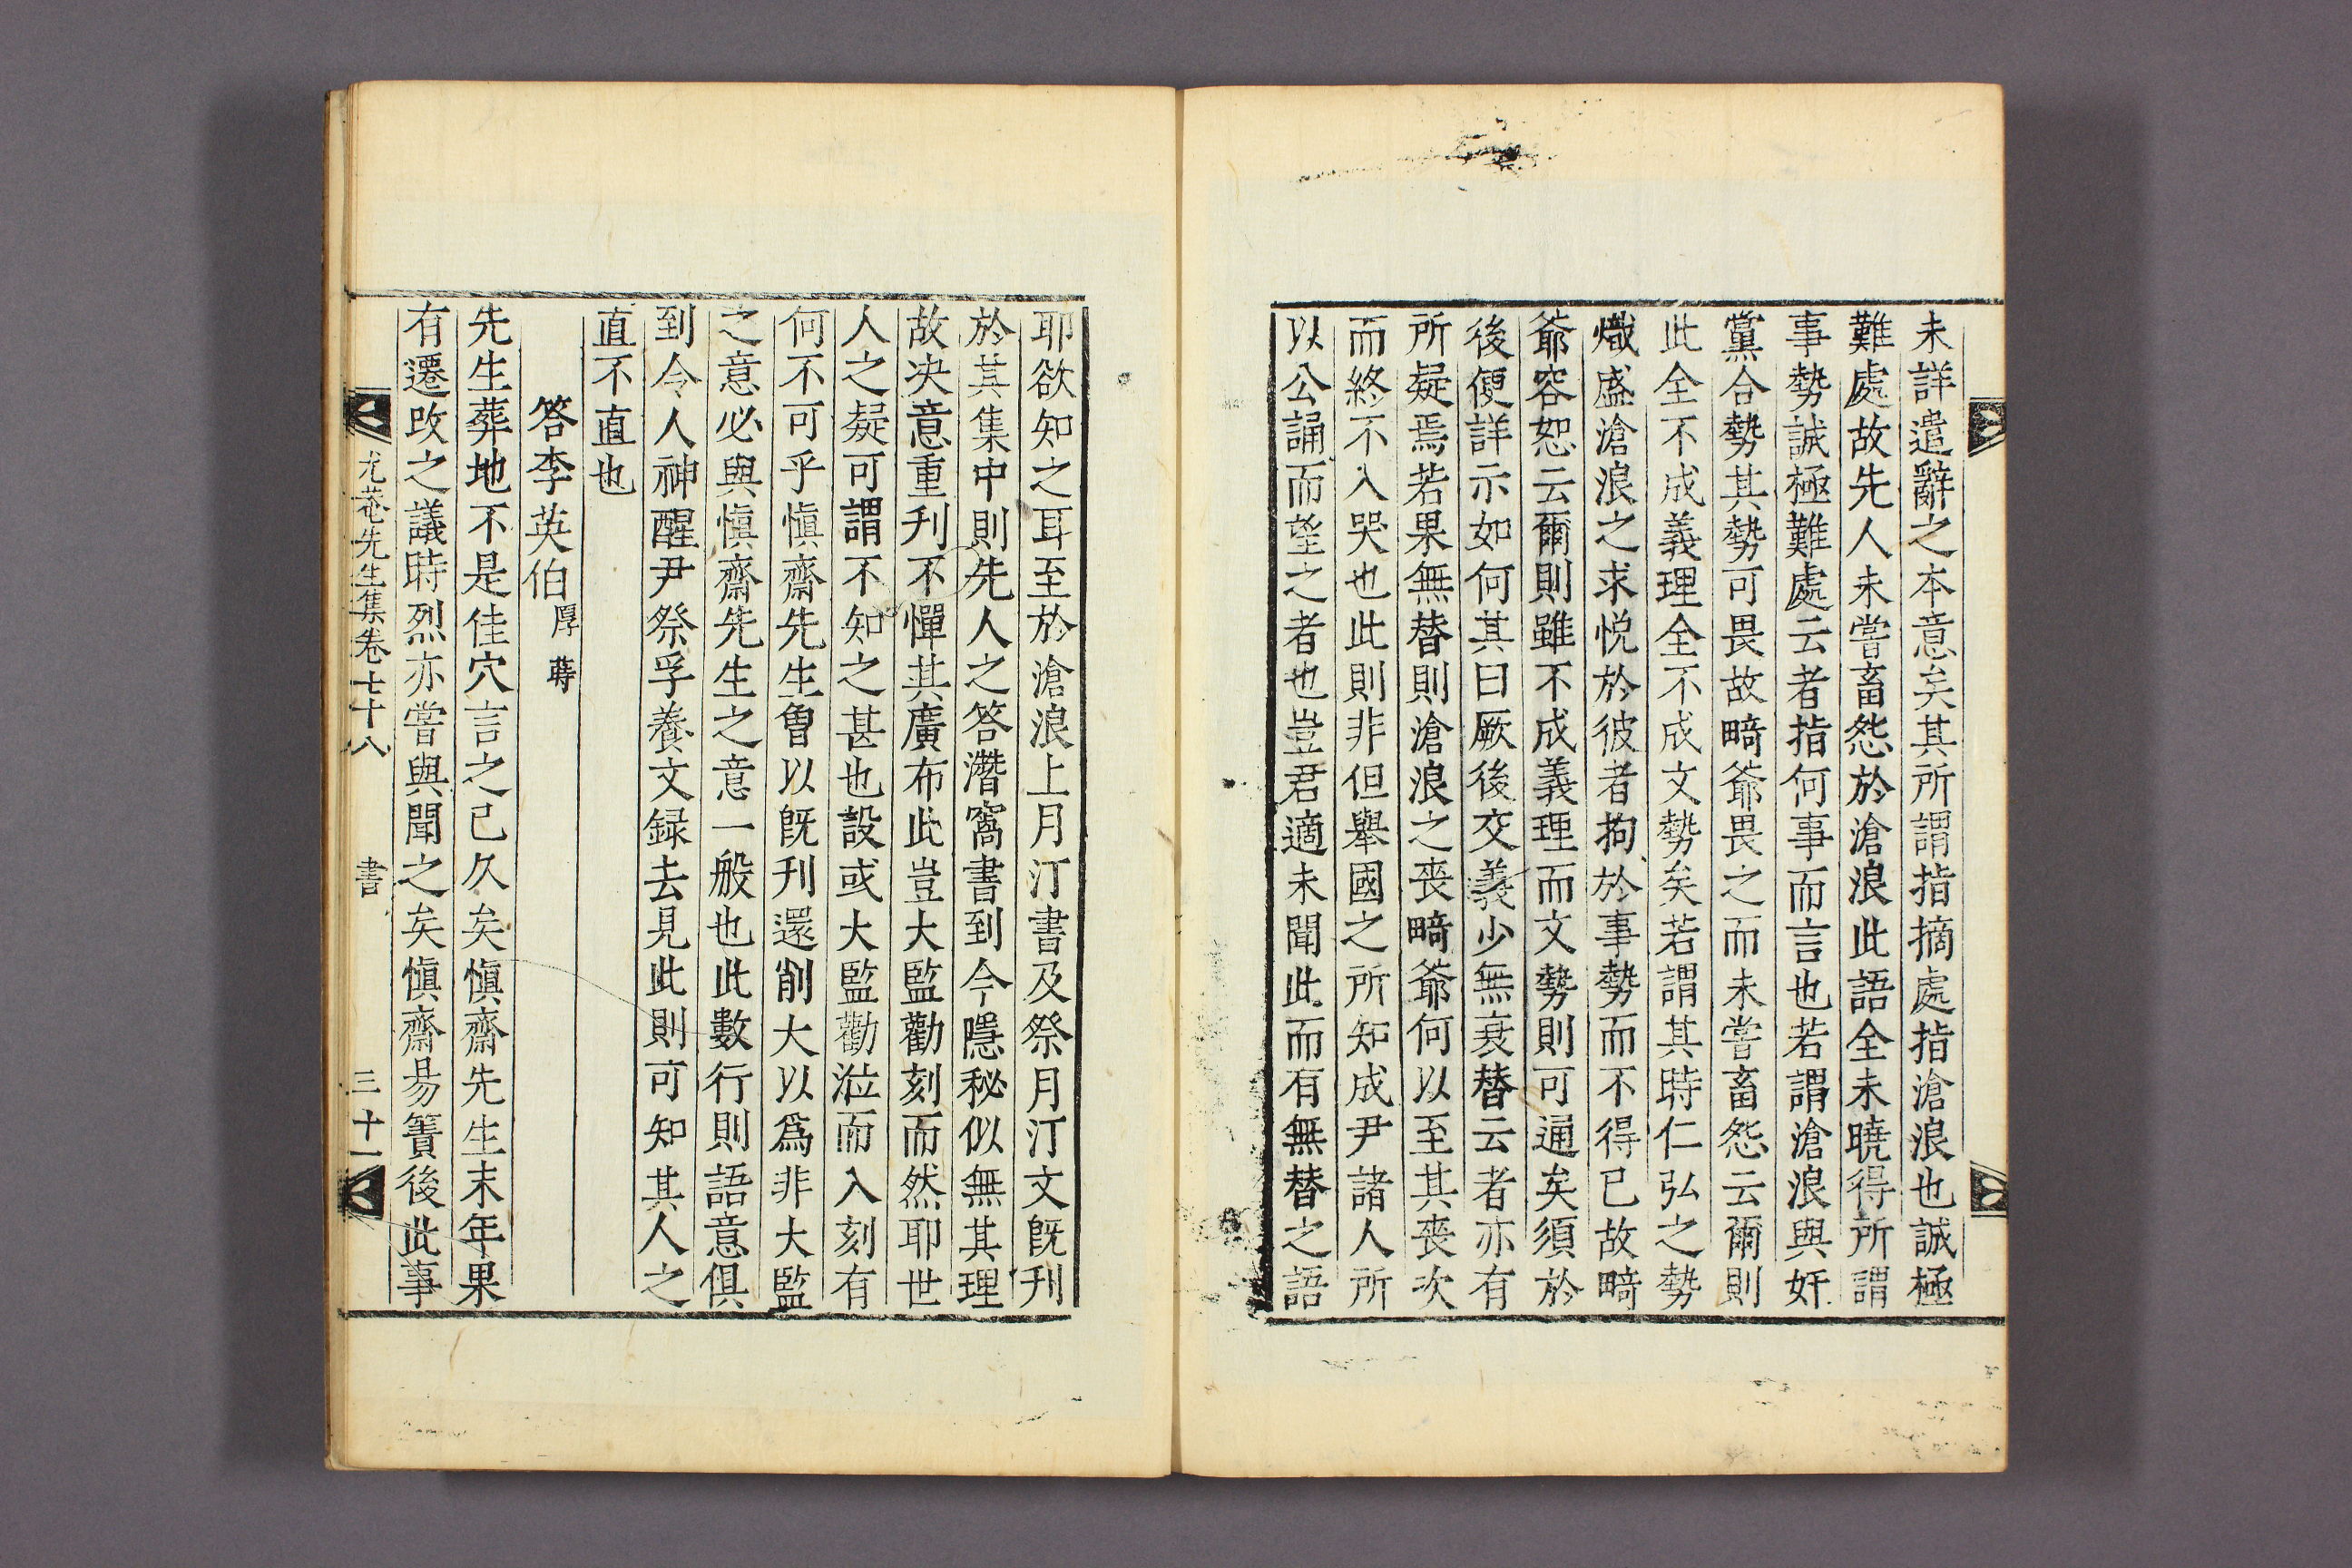 未詳遣辭之本意矣其所謂指摘處指滄浪也誠極
難處故先人未嘗畜怨於滄浪此語全未曉得所謂
事勢誠極難處云者指何事而言也若謂滄浪與奸
黨合勢其勢可畏故畸爺畏之而未嘗畜怨云爾則
此全不成義理全不成文勢矣若謂其時仁弘之勢
熾盛滄浪之求悅於彼者拘於事勢而不得已故畸
爺容恕云爾則雖不成義理而文勢則可通矣須於
後便詳示如何其曰厥後交義少無衰替云者亦有
所疑焉若果無替則滄浪之喪畸爺何以至其喪次
而終不入哭也此則非但舉國之所知成尹諸人所
以公誦而望之者也豈君適未聞此而有無替之語
耶欲知之耳至於滄浪上月汀書及祭月汀文旣刊
於其集中則先人之答潛窩書到今隱秘似無其理
故决意重刊不憚其廣布此豈大監勸刻而然耶世
人之疑可謂不知之甚也設或大監勸泣而入刻有
何不可乎愼齋先生曾以旣刊還削大以爲非大監
之意必與愼齋先生之意一般也此數行則語意俱
到令人神醒尹祭孚養文録去見此則可知其人之
直不直也
答李英伯厚蒔
先生葬地不是佳穴言之已久矣愼齋先生末年果
有遷改之議時烈亦嘗與聞之矣愼齋易簀後此事
尤菴先生集卷七十八 書 三十一